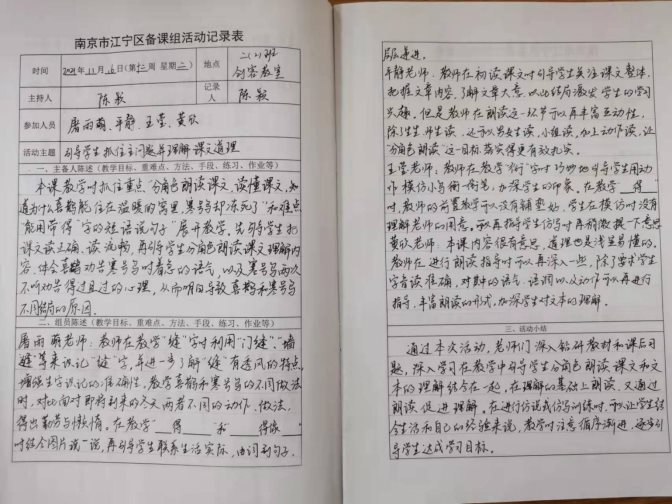 南京市江宁区备课组活动记录表
时间 2021年11月16日(第十二周 星期二) 地点 二(2)班
创客教室
主持人 陈颖 记录人 陈颖
参加人员 屠雨萌、平静、王莹、黄欣
活动主题 引导学生抓住主问题并理解课文道理
一、主备人陈述(教学目标、重难点、方法、手段、练习、作业等)
本课教学时抓住重点“分角色朗读课文,读懂课文,知
道为什么喜鹊能住在温暖的窝里,寒号鸟却冻死了”和难点
“能用带“得”字的短语说句子”展开教学,先引导学生把
课文读正确、读流畅,再引导学生分角色朗读课文理解内
容,体会喜鹊劝告寒号鸟时着急的语气,以及寒号鸟两次
不听劝告得过且过的心理,从而明白导致喜鹊和寒号鸟
不同结局的原因。
二、组员陈述(教学目标、重难点、方法、手段、练习、作业等)
屠雨萌老师:教师在教学“缝”字时利用“门缝”、“墙
缝”等来识记“缝”字,并进一步了解“缝”有透风的特点,
增强生字识记的准确性。教学喜鹊和寒号鸟的不同做法
时,对比面对即将到来的冬天,两者不同的动作、做法,
得出勤劳与懒惰。在教学“ 得 ” “ 得像 ”
时结合图片说一说,再引导学生联系生活实际,由词到句子,
层层递进。
平静老师:教师在初读课文时引导学生关注课文整体,
把握文章内容,了解文章大意,以此结局激发学生的学习
兴趣。但是教师在朗读这一环节可以再丰富互动性,
除了生生、师生读,还可以男女生读、小组读,加上动作读,让
“分角色朗读”这一目标落实得更有效扎实。
王莹老师:教师在教学“衔”字时巧妙地引导学生用动
作模仿小鸟衔一衔笔,加深学生的印象。在教学“ 得 ”
时,教师的前置教学可以没有铺垫好,学生在模仿时没有
理解老师的用意。可以再指导学生仿写时再稍微提一下意思
黄欣老师:本课内容很有意思,道理也是浅显易懂的。
教师在进行朗读指导时可以再深入一些,除了要求学生
字音读准确,对其中的语气、语调以及动作可以再进行
指导,丰富朗读的形式,加深学生对文本的理解。
三、活动小结
通过本次活动,老师们深入钻研教材和课后习
题,深入学习在教学中引导学生分角色朗读课文和文
本的理解结合在一起,在理解的基础上朗读,又通过
朗读促进理解。在进行仿说或仿写训练时,可以让学生结
合生活和自己的经验来说,教学时注意循序渐进,逐步引
导学生达成学习目标。